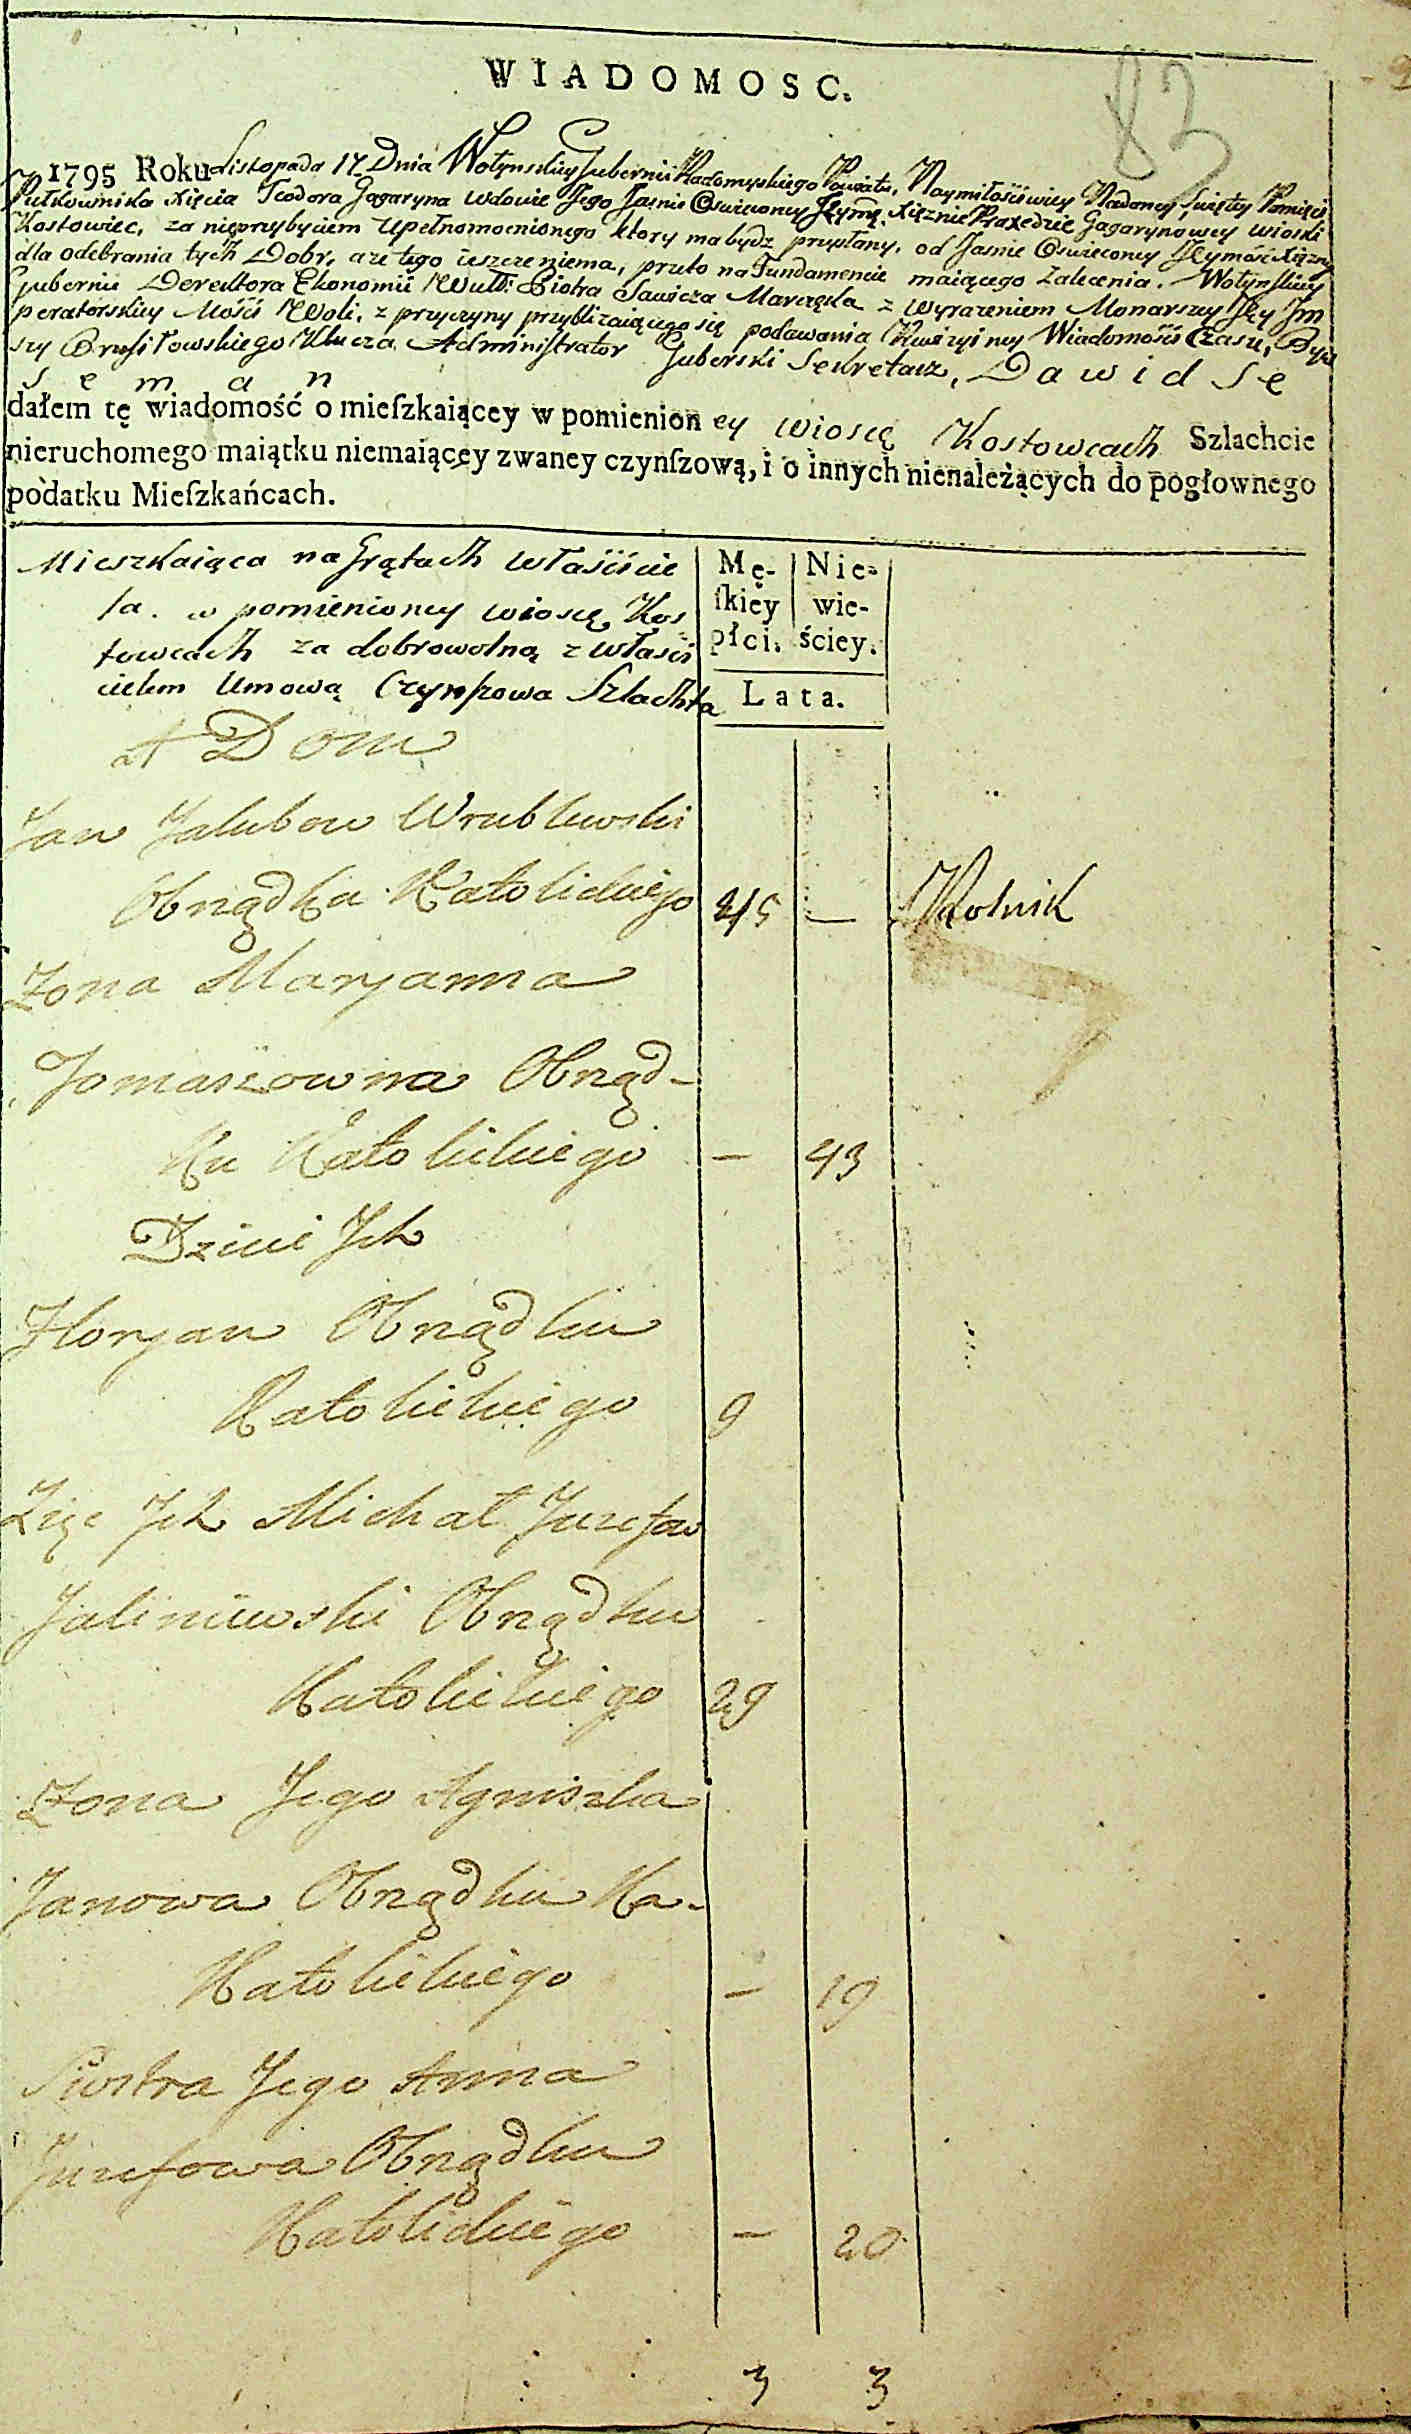 WIADOMOSC.
83
1795 Roku Listopada 17 Dnia Wołynskiey Gubernii Radomyskiego Powiatu, Naymiłościwiey Nadaney Swiętey Pamięci
Pułkownika Xięcia Teodora Gagaryna wdowie Jego Jasnie Oswieconey Xiężnie Praxedzie Gagarynowey wioski
Kostowiec, za nieprzybyciem upełnomocnionego ktory ma bydz przysłany, od Jasnie Oswieconey Jeymość Xiężny
dla odebrania tych Dobr, a że tego ieszcze niema, przeto na Fundamencie maiącego zalecenia. Wołynskiey
Gubernii Derektora Ekonomii Piotra Sawicza Marczęka z wyrazeniem Monarszey Jey Im
peratorskiey Mości Woli, z przyczyny przybliżaiącego się podawania Rewizyiney Wiadomości Czasu, Byw
szy Brusiłowskiego Klucza Administrator Guberski Sekretarz, Dawid Se
seman
dałem tę wiadomość o mieſzkaiącey w pomienion ey wioscę Kostowcach Szlachcie
nieruchomego maiątku niemaiącęy zwaney czynſzową, i o innych nienależących do pogłownego
podatku Mieſzkańcach.
Mieszkaiąca na Grątach właściicie
la w pomienioney wioscę Kos
towcach za dobrowolną z właści
cielem Umową Czynszowa Szlachta
Mę- Nie-
ſkiey wie-
płci. ściey.
Lata.
1 Dom
Jan Jakubow Wrublewski
Obrządka Katolickiego 45 — Rolnik
Zona Maryanna
Tomaszowna Obrząd-
Ku Katolickiego — 43
Dzieci Jch
Floryan Obrządku
Katolickiego 9
Zięc Jch Michał Juzefow
Jaliniewski Obrządku
Katolickiego 29
Zona Jego Agniszka
Janowa Obrządku Ka-
Katolickiego — 19
Siostra Jego Anna
Juzefowa Obrządku
Katolickiego — 20
3 3